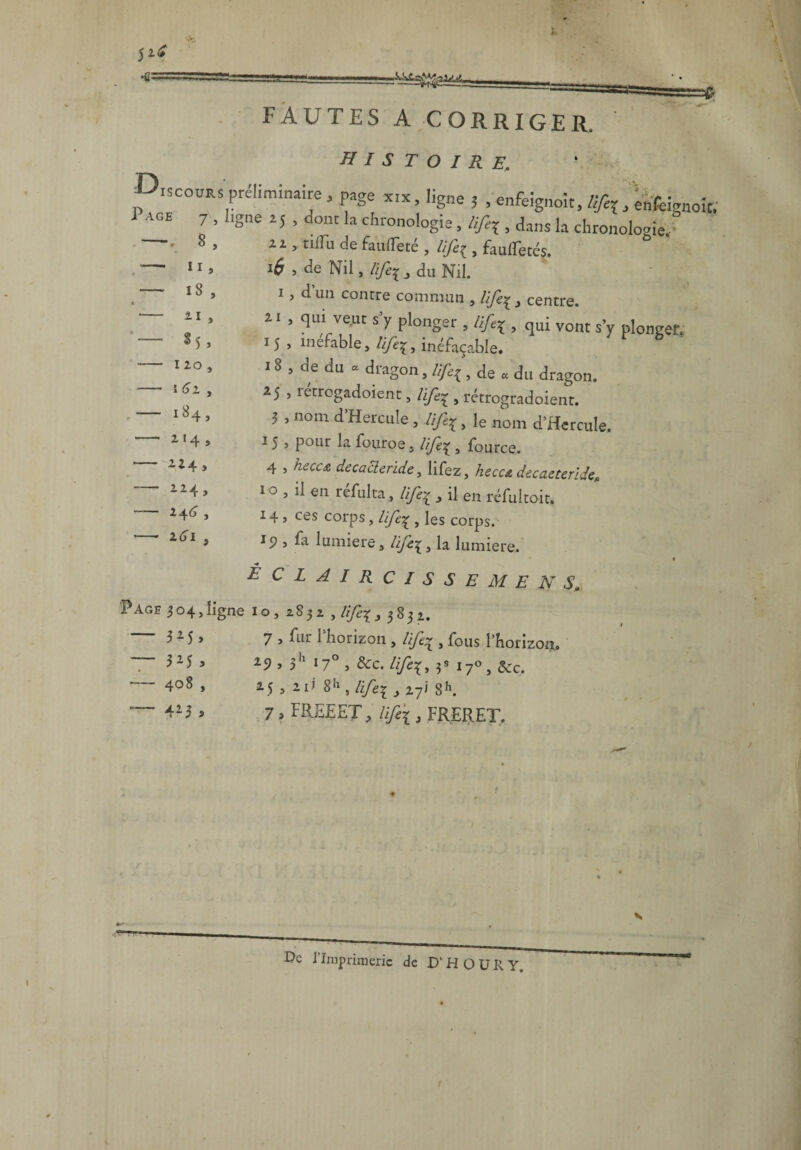 526
FAUTES A CORRIGER.
HISTOIRE.
DISCOURS préliminaire, page xix, ligne 3, enſeignoit, liſez, enſeignoit.
PAGE 7, ligne 25, dont la chronologie, liſez, dans la chronologie.
— 8, 22, tiſſu de fauſſeté, liſez, fauſſetés.
— 11, 16, de Nil, liſez, du Nil.
— 18, 1, d'un contre commun, liſez, centre.
— 21, 21, qui veut s'y plonger, liſez, qui vont s'y plonger.
— 85, 15, inéfable, liſez, inéfaçable.
— 120, 18, de du α dragon, liſez, de α du dragon.
— 162, 25, rétrogadoient, liſez, rétrogradoient.
— 184, 3, nom d'Hercule, liſez, le nom d'Hercule.
— 214, 15, pour la fouroe, liſez, fource.
— 224, 4, heccæ decacteride, liſez, heccæ decaeteride.
— 224, 10, il en réſulta, liſez, il en réſultoit.
— 246, 14, ces corps, liſez, les corps.
— 261, 19, ſa lumiere, liſez, la lumiere.
ÉCLAIRCISSEMENS.
PAGE 304, ligne 10, 2832, liſez, 3832.
— 325, 7, ſur l'horizon, liſez, ſous l'horizon.
— 325, 29, 3h 17°, &c. liſez, 3s 17°, &c.
— 408, 25, 21j 8h, liſez, 27j 8h.
— 423, 7, FREEET, liſez, FRERET.
De l'Imprimerie de D'HOURY.